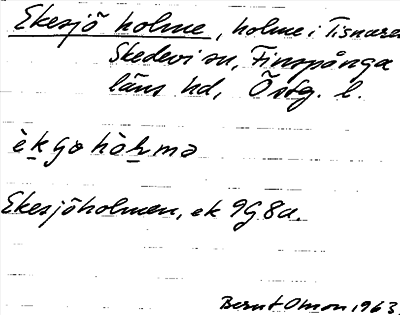 Ekesjö holme, holme i Tisnaren
Skedevi sn, Finspånga
läns hd, Östg. l.
Ekesjöholmen, ek 9G8a.
Bernt Olsson 1963.